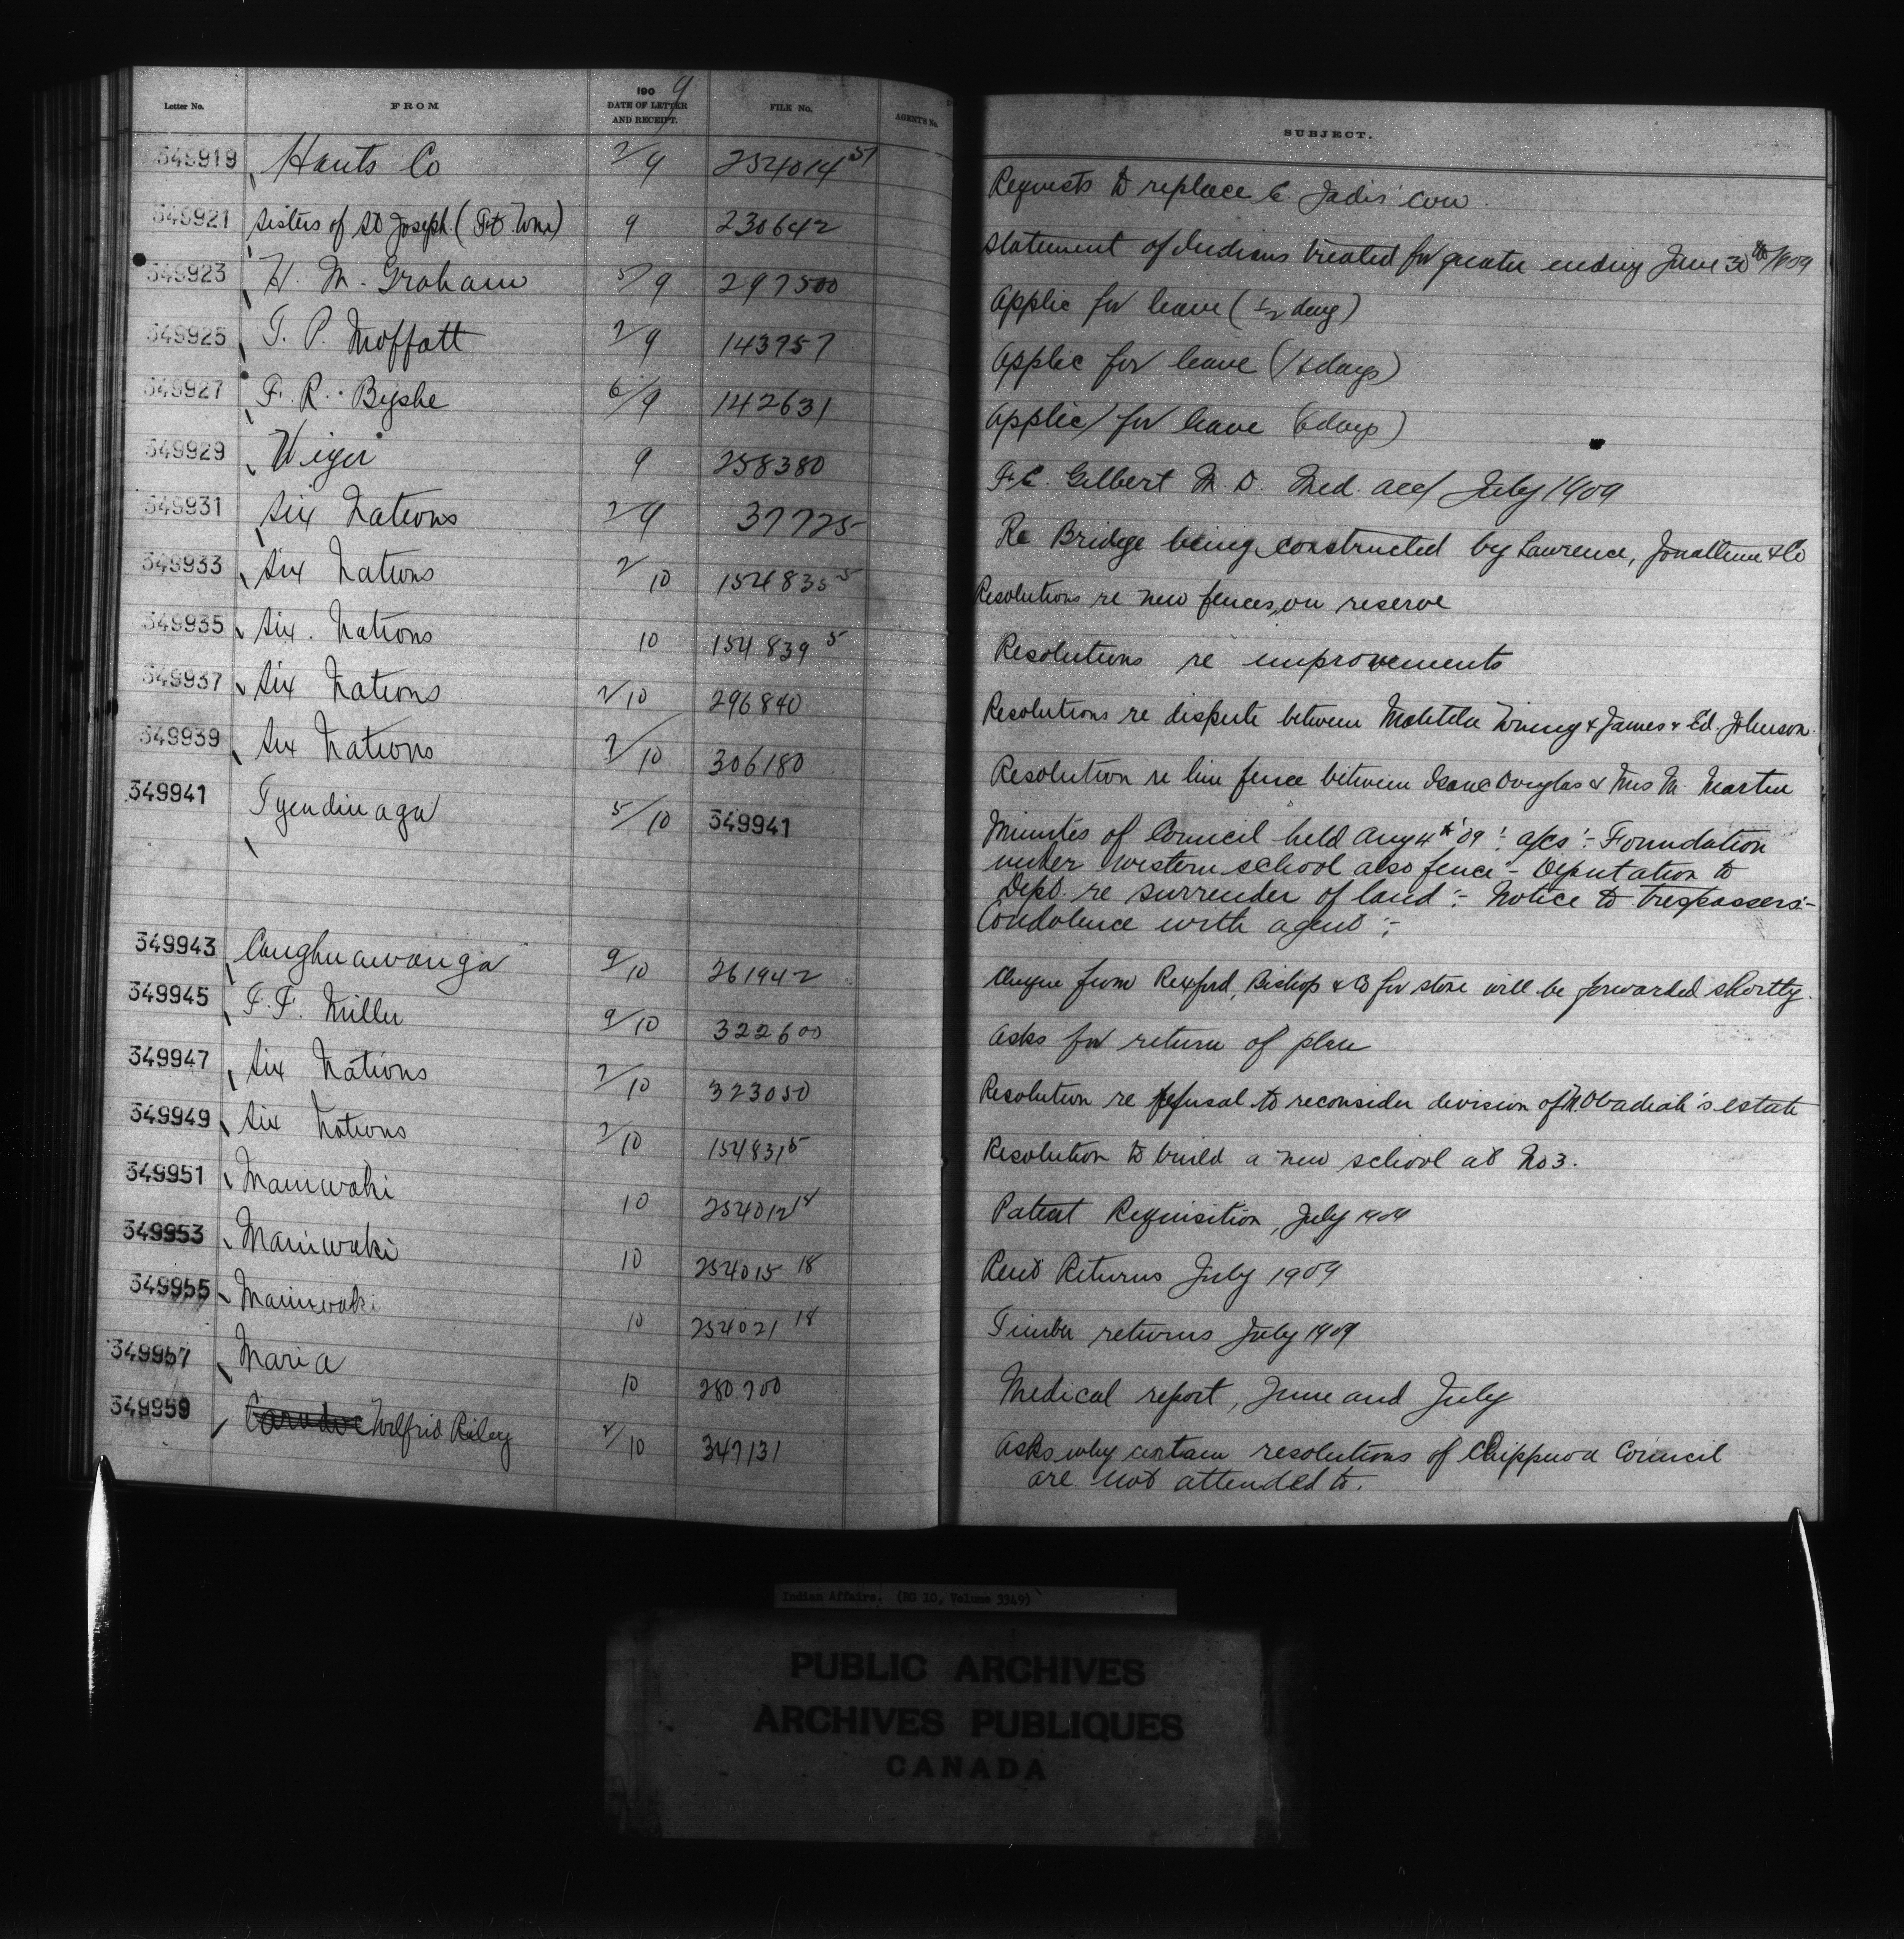 Letter No. FROM 1909 DATE OF LETTER AND RECEIPT. FILE No. AGENT'S No. SUBJECT.
349919 Hants Co 7/9 254014 51 Requests to replace C. Jadis' cow.
349921 Sisters of St Joseph (Ft. Wm) 9 230642 Statement of Indians treated for quarter ending June 30th/1909
349923 W. M. Graham 5/9 297500 Applic for leave (1/2 day)
349925 T. P. Moffatt 7/9 143757 Applic for leave ( days)
349927 F. R. Byshe 6/9 142631 Applic for leave (6 days)
349929 9 258380 F. C. Gilbert M. D. Med. acc/ July 1909
349931 Six Nations 7/9 37725 Re Bridge being constructed by Lawrence, Jonathan & Co
349933 Six Nations 7/10 154835 5 Resolutions re new fences on reserve
349935 Six Nations 10 154839 5 Resolutions re improvements
349937 Six Nations 7/10 296840 Resolutions re dispute between Matilda & James & Ed. Johnson.
349939 Six Nations 7/10 306180 Resolution re line fence between Isaac Douglas & Mrs M. Martin
349941 Tyendinaga 5/10 349941 Minutes of Council held Aug 4th '09 :- a/cs :- Foundation
under western school also fence :- Deputation to
Dept. re surrender of land :- Notice to trespassers :-
Condolence with agent :-
349943 Caughnawauga 9/10 261942 Cheque from Rexford, Bishop & Co for stone will be forwarded shortly.
349945 F. F. Miller 9/10 322600 Asks for return of plan
349947 Six Nations 7/10 323050 Resolution re refusal to reconsider division of M. Obadiah's estate
349949 Six Nations 7/10 154831 5 Resolution to build a new school at No 3.
349951 Maniwaki 10 254012 18 Patent Requisition, July 1909
349953 Maniwaki 10 254015 18 Rent Returns July 1909
349955 Maniwaki 10 254021 18 Timber returns July 1909
349957 Maria 10 280700 Medical report, June and July
349959 Caradoc Wilfrid Riley 7/10 347131 Asks why certain resolutions of Chippewa Council
are not attended to.
Indian Affairs. (RG 10, Volume 3349)
PUBLIC ARCHIVES
ARCHIVES PUBLIQUES
CANADA